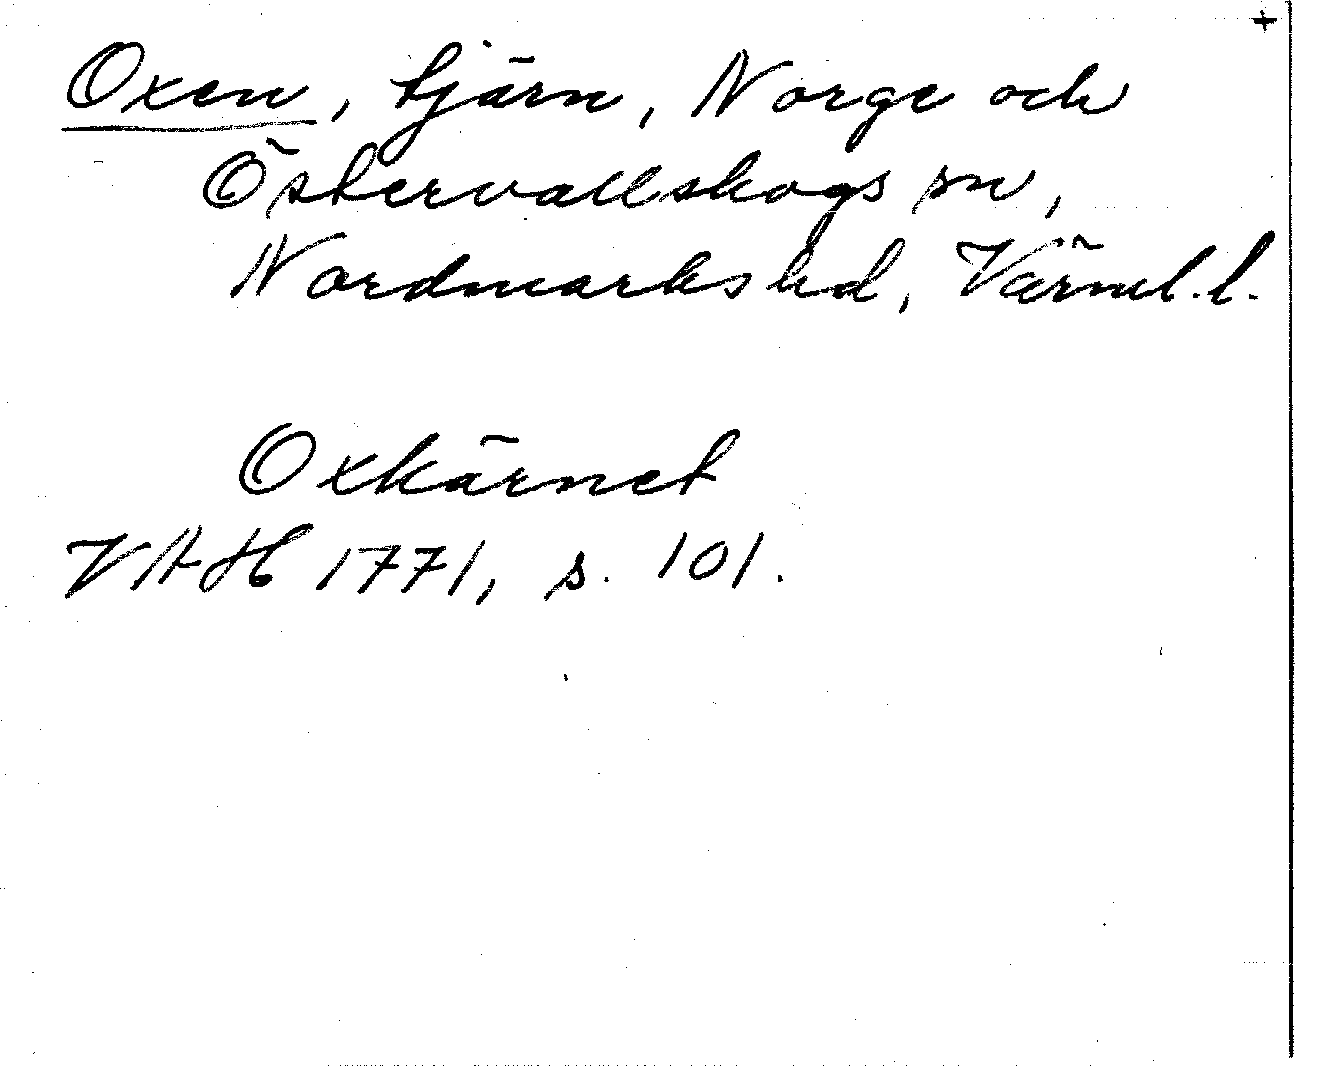 +
Oxen, tjärn, Norge och
Östervallskogs sn,
Nordmarks hd, Värml. l.
Oxkärnet
VAH 1771, s. 101.